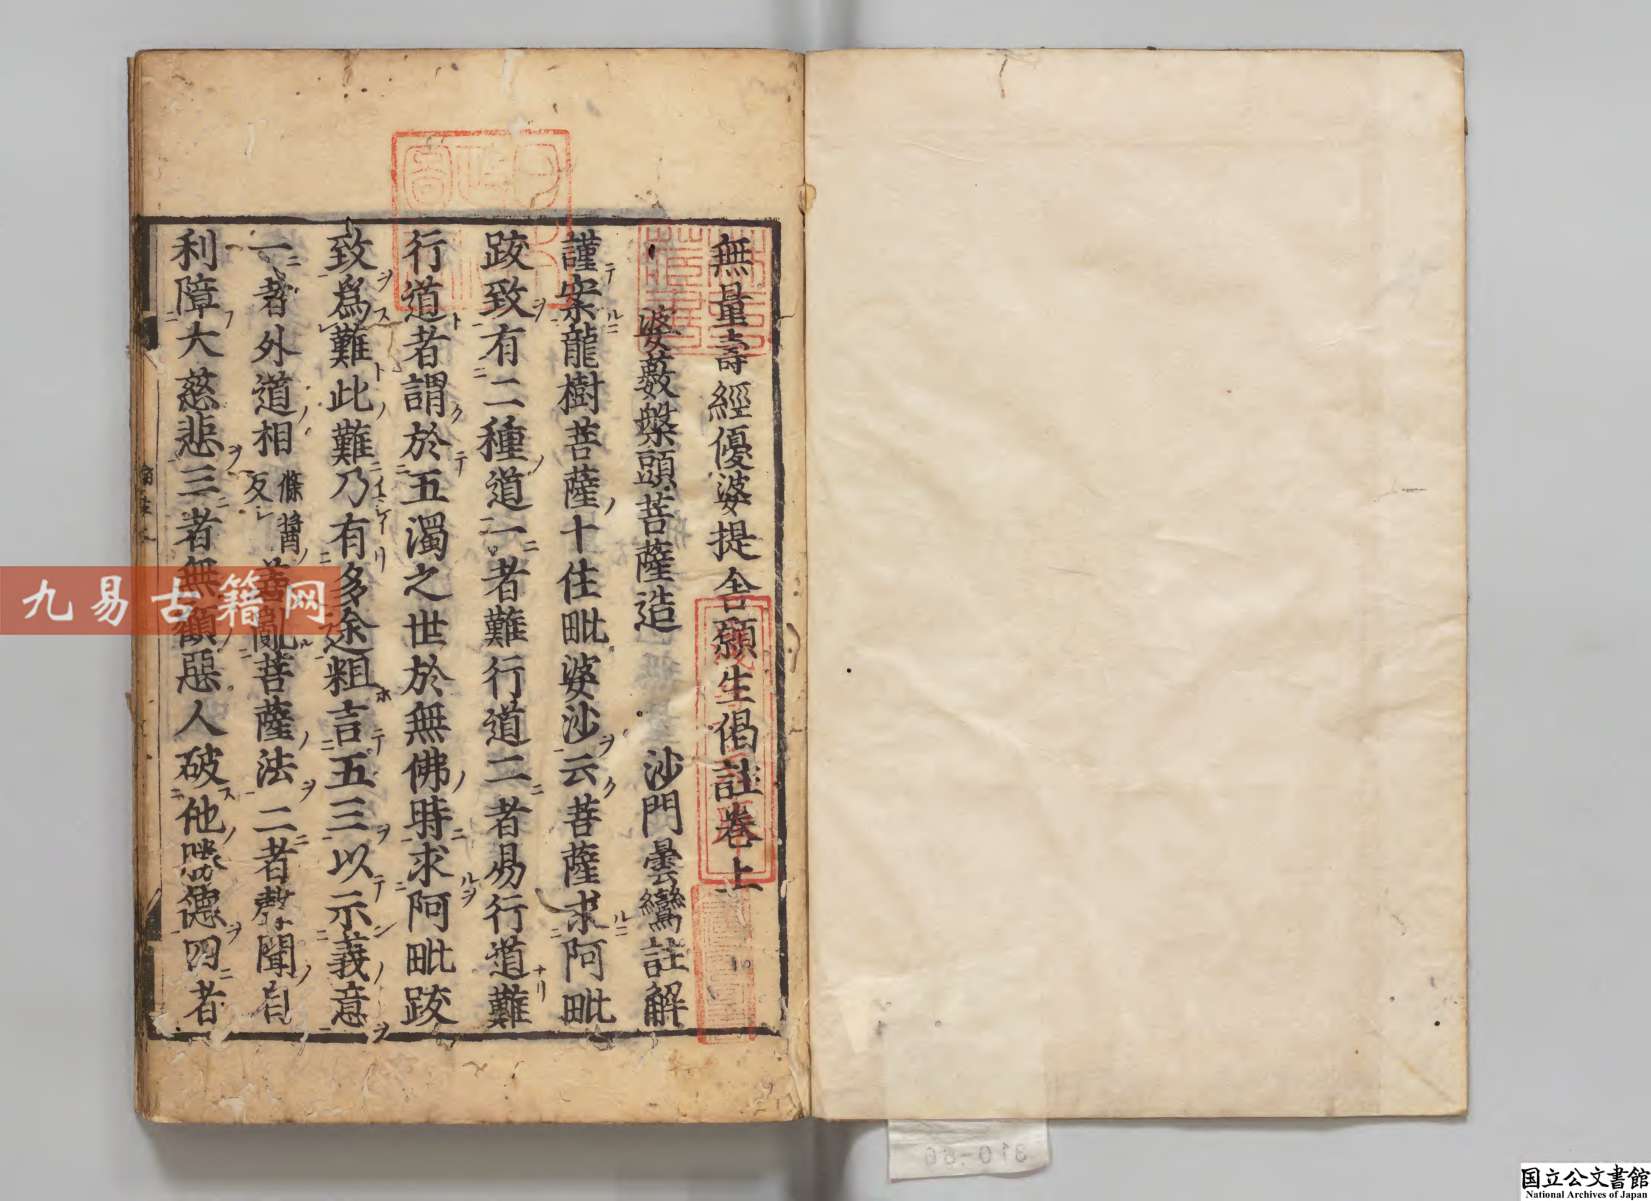 無量壽經優婆提舍願生偈註卷上
婆藪槃頭菩薩造 沙門曇鸞註解
謹案龍樹菩薩十住毗婆沙云菩薩求阿毗
跋致有二種道一者難行道二者易行道難
行道者謂於五濁之世於無佛時求阿毗跋
致爲難此難乃有多途粗言五三以示義意
一者外道相 脩醬反 善亂菩薩法二者聲聞自
利障大慈悲三者無顧惡人破他勝德四者
九易古籍网
国立公文書館
National Archives of Japan